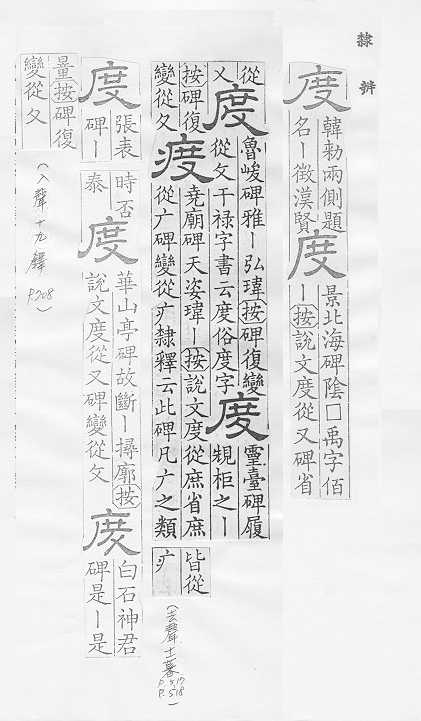 隸辨
度
韓勑兩側題
名丨徵漢賢
度
景北海碑陰□禹字佰
丨按說文度從又碑省
從
又
度
魯峻碑雅丨弘瑋按碑復變
從攵干禄字書云度俗度字
度
靈臺碑履
規柜之丨
按碑復
變從夂
度
堯廟碑天姿瑋丨按說文度從庶省庶
從广碑變從疒隸釋云此碑凡广之類
皆從
疒
(去聲十一暮 P.517 P.518)
度
張表
碑丨
時否
泰
度
華山亭碑故斷丨撏廓按
說文度從又碑變從攵
度
白石神君
碑是丨是
量按碑復
變從夂
(入聲十九鐸 P.708)